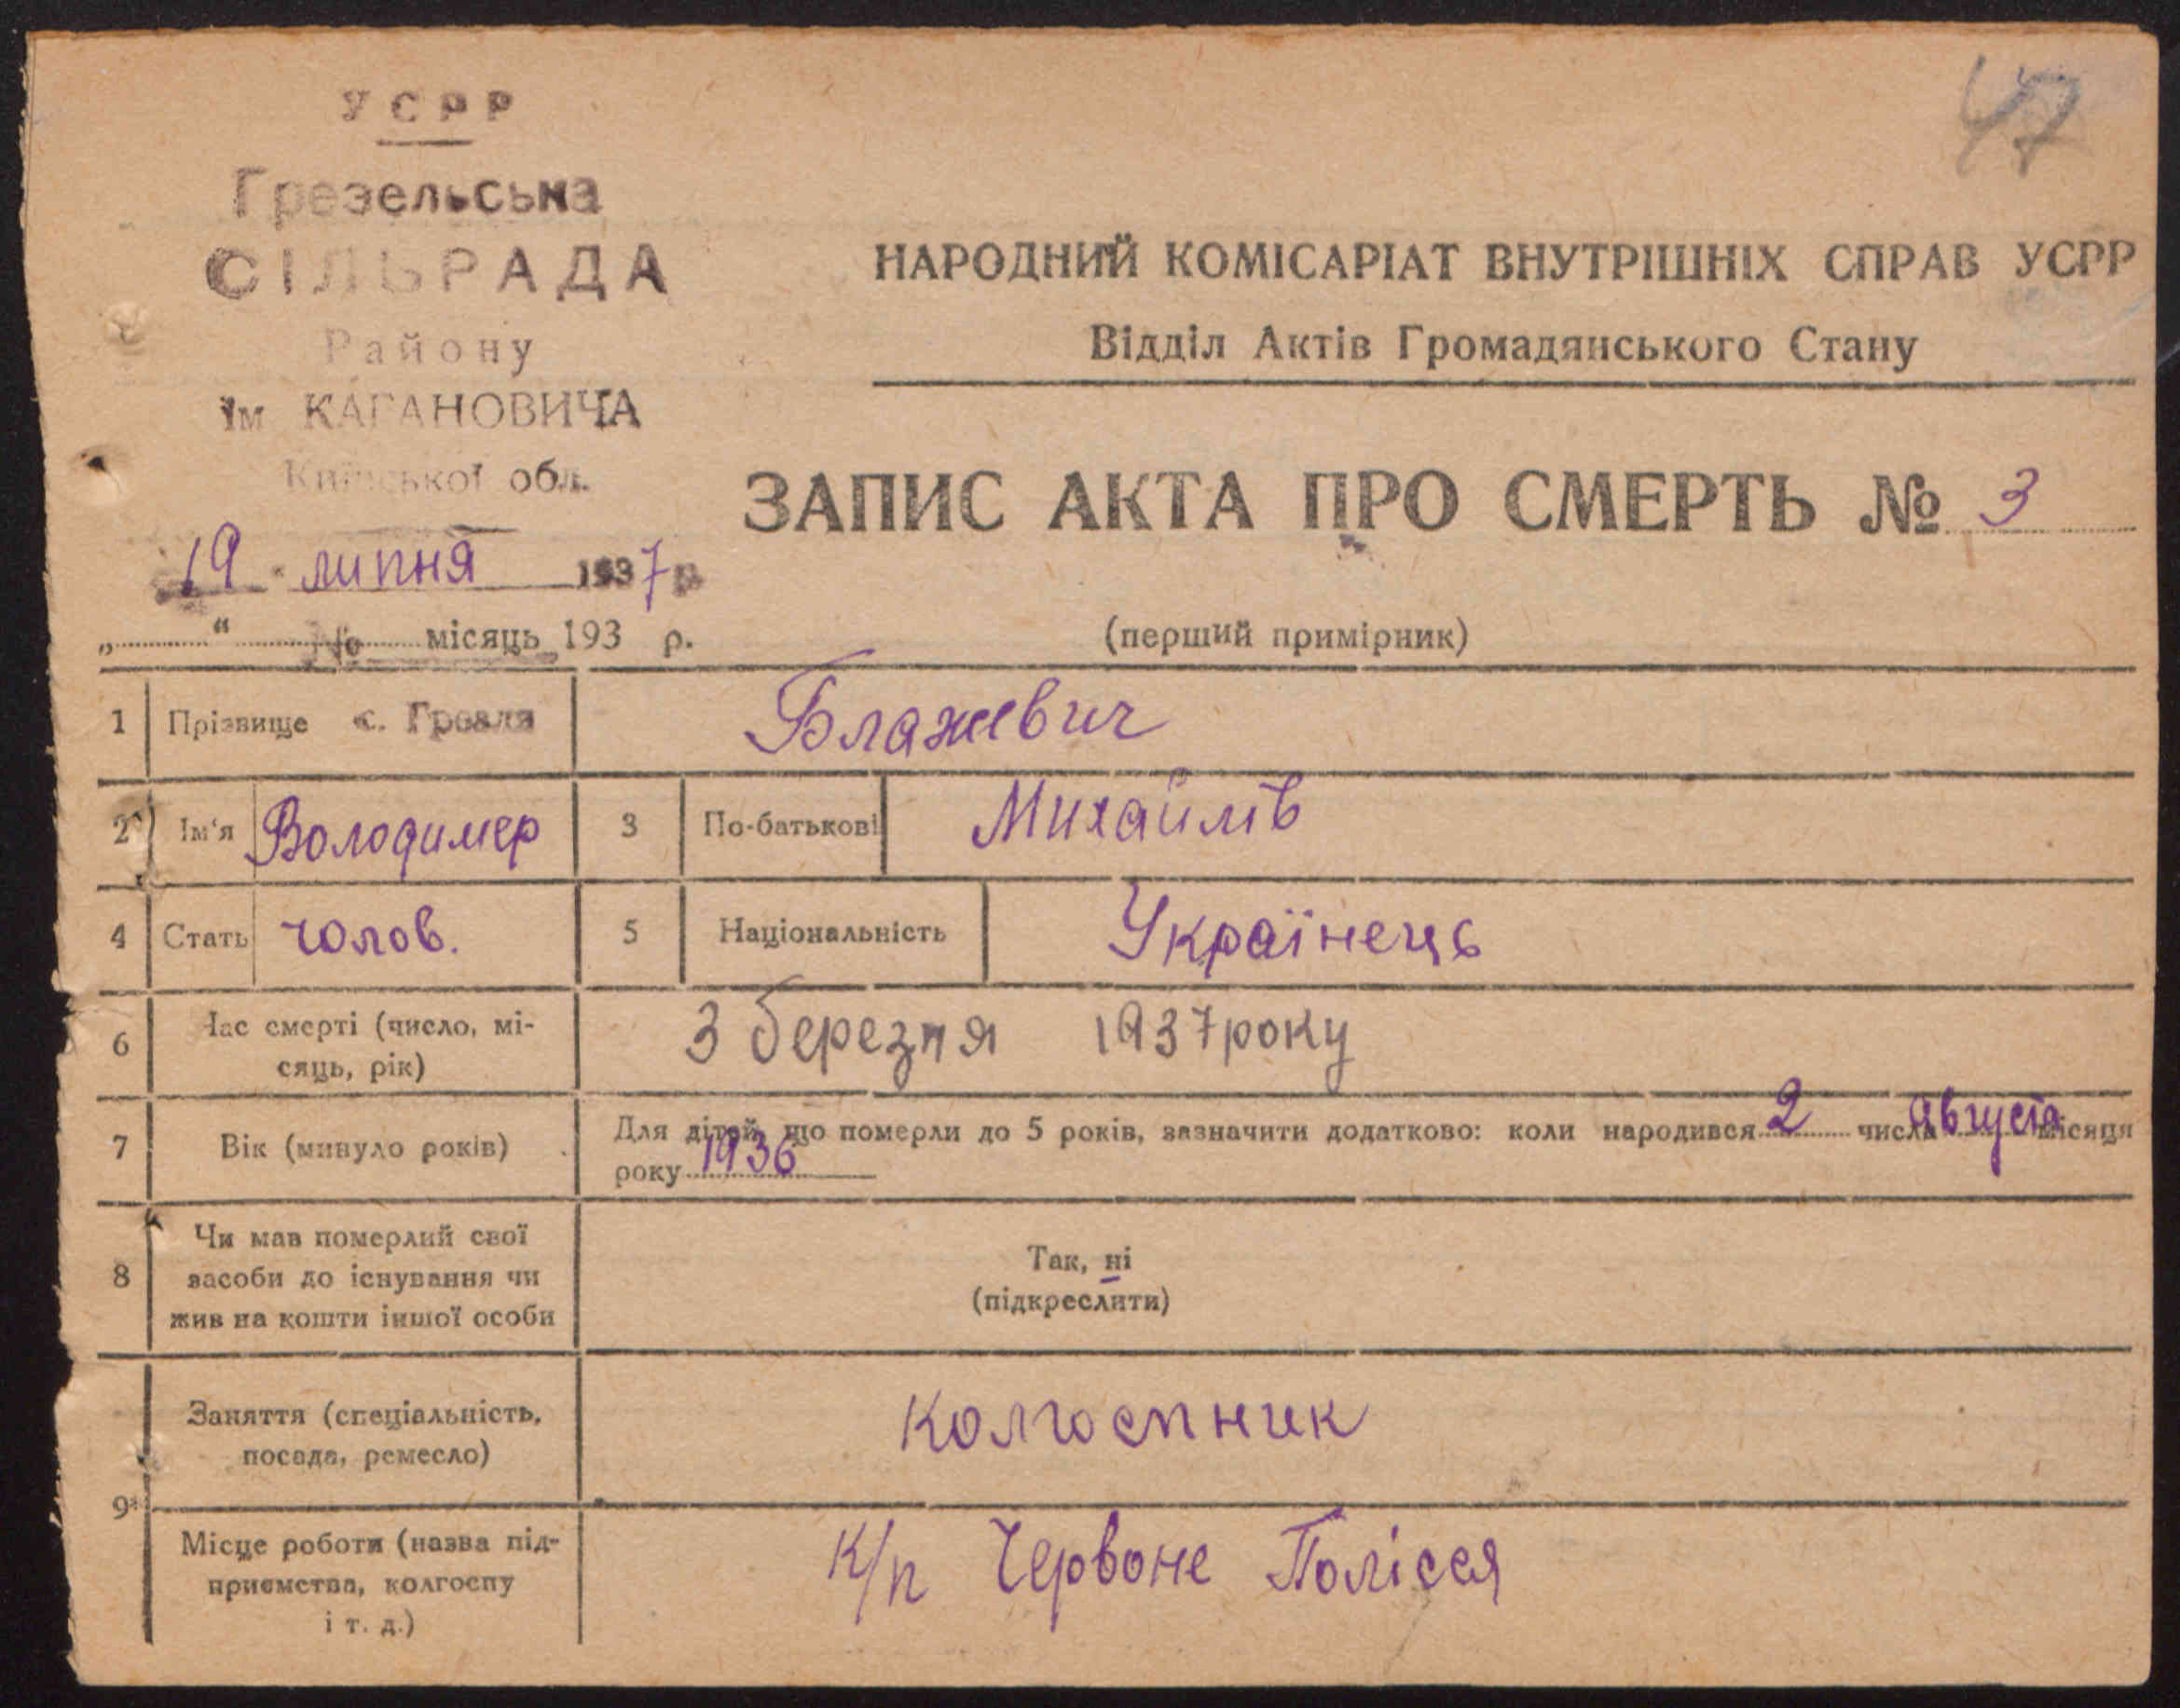 47
УСРР
Грезельська
СІЛЬРАДА
Району
ім КАГАНОВИЧА
Київської обл.
19 липня 1937 р
№
НАРОДНИЙ КОМІСАРІАТ ВНУТРІШНІХ СПРАВ УСРР
Відділ Актів Громадянського Стану
ЗАПИС АКТА ПРО СМЕРТЬ № 3
„ “ місяць 193 р.
(перший примірник)
1 Прізвище с. Грезля Блажевич
2 Ім'я Володимер 3 По-батькові Михайлів
4 Стать чолов. 5 Національність Українець
6 Час смерті (число, мі-
сяць, рік)
3 березня 1937 року
7 Вік (минуло років)
Для дітей, що померли до 5 років, зазначити додатково: коли народився 2 числа августа місяця
року 1936
8 Чи мав померлий свої
засоби до існування чи
жив на кошти іншої особи
Так, ні
(підкреслити)
9 Заняття (спеціальність,
посада, ремесло)
колгоспник
Місце роботи (назва під-
приємства, колгоспу
і т. д.)
к/п Червоне Полісся